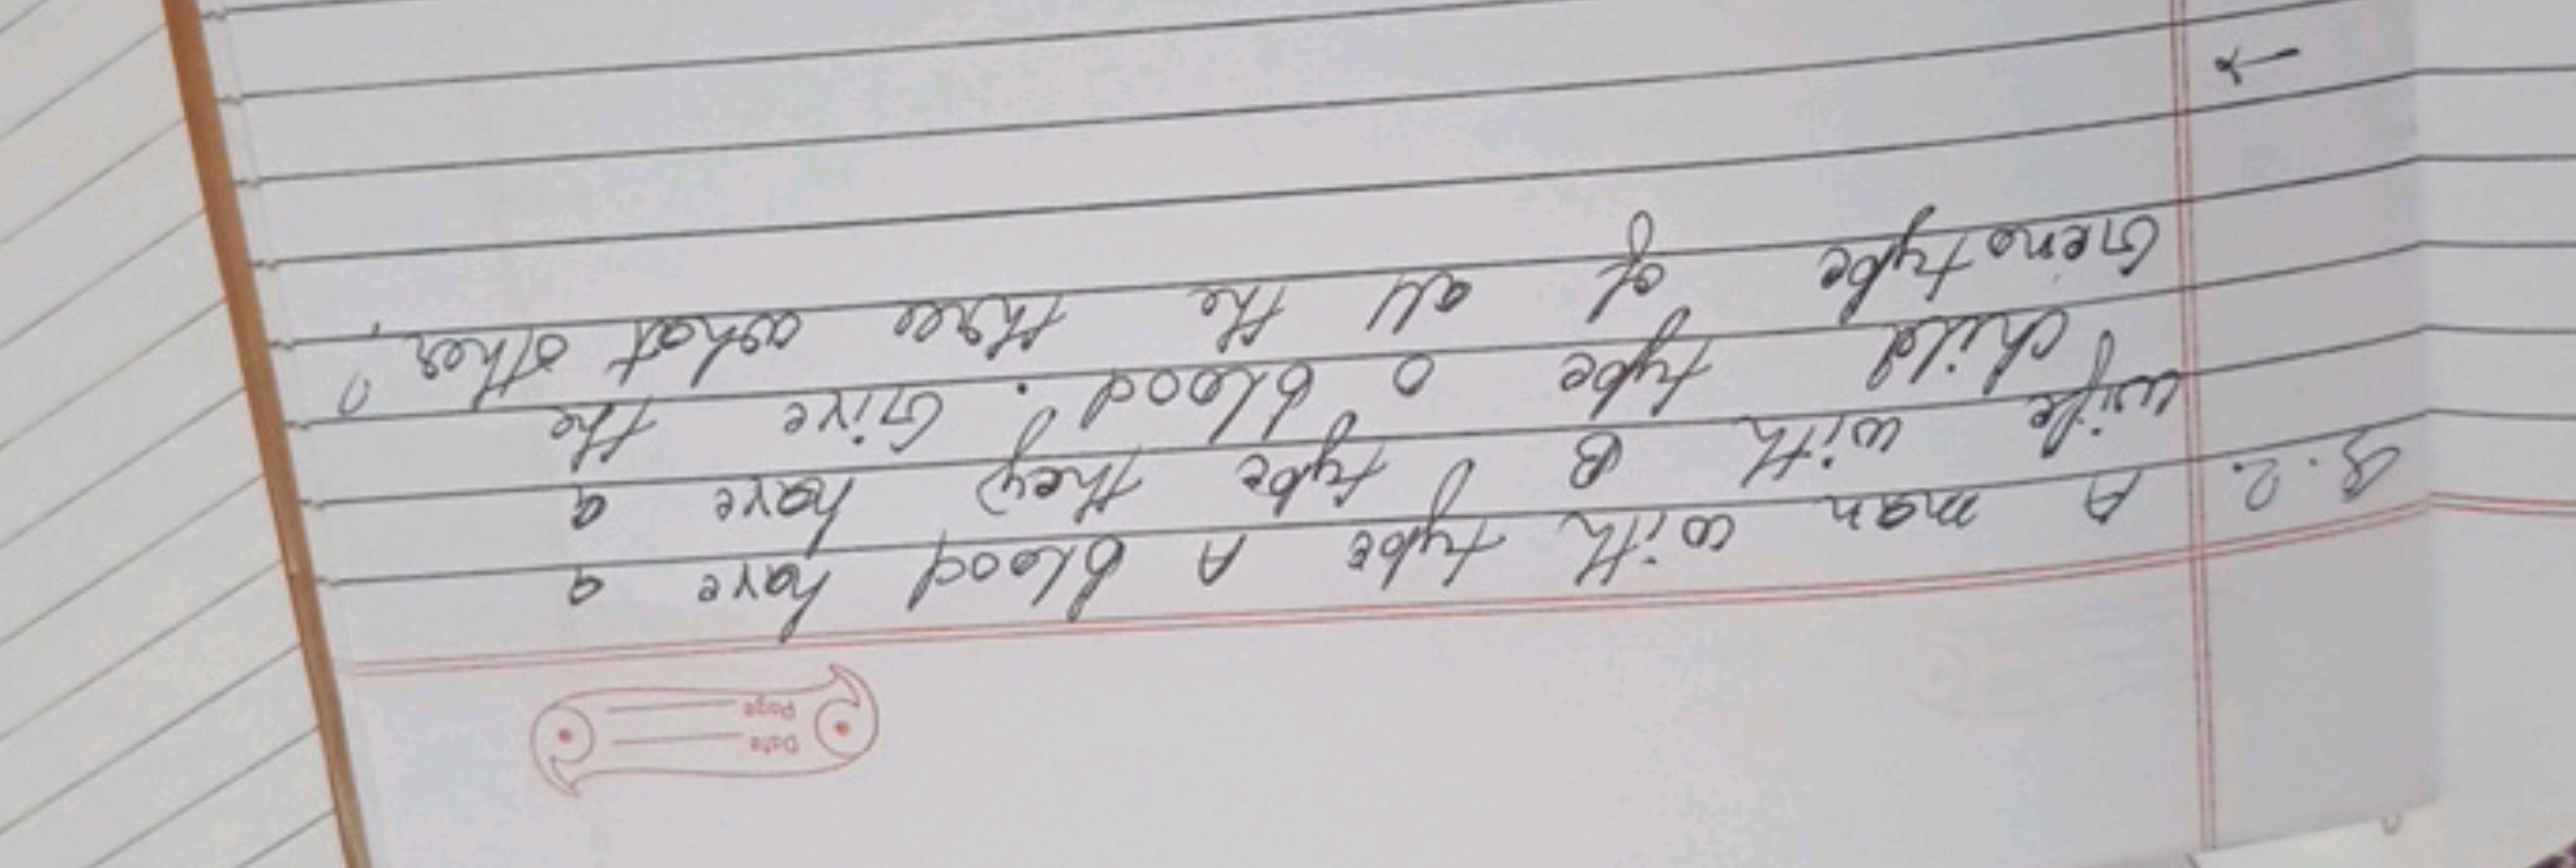 Date
Page
Q.2. A man with type A blood have a
wife with B type they have a
child type O blood. Give the
Genotype of all the three what other
?
→